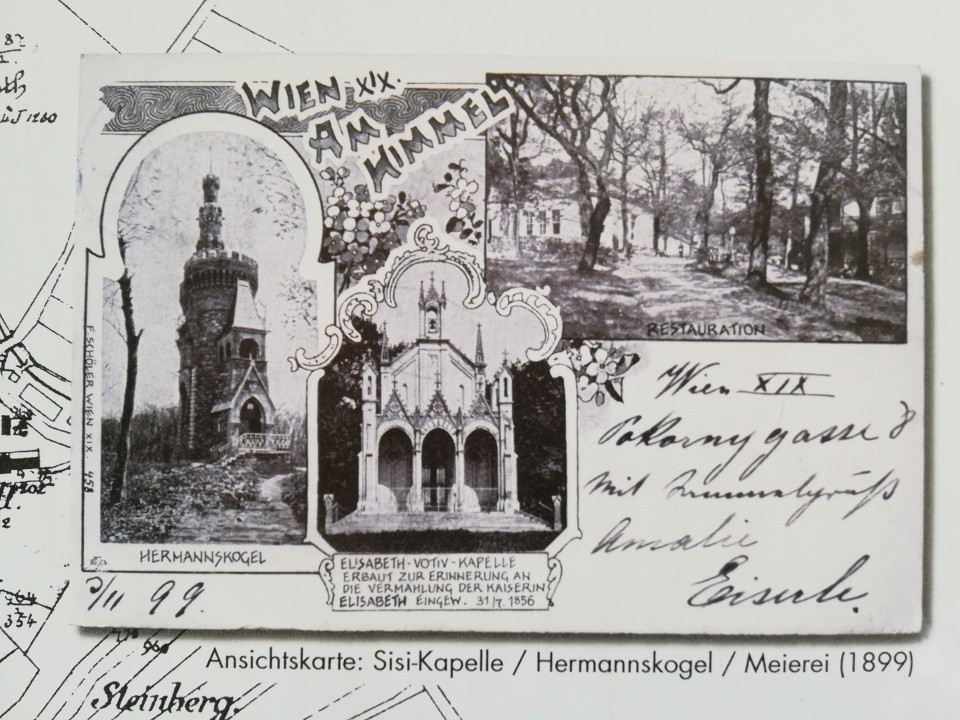 WIEN XIX.
AM
HIMMEL
RESTAURATION
F. SCHÖLER WIEN XIX. 458
HERMANNSKOGEL
ELISABETH-VOTIV-KAPELLE
ERBAUT ZUR ERINNERUNG AN
DIE VERMÄHLUNG DER KAISERIN
ELISABETH EINGEW. 31/7. 1856
Wien XIX
Pokornygasse 8
Mit
Amalie
Eiserle.
3/11 99.
Ansichtskarte: Sisi-Kapelle / Hermannskogel / Meierei (1899)
87
J 1260
64
354
2
Steinberg.